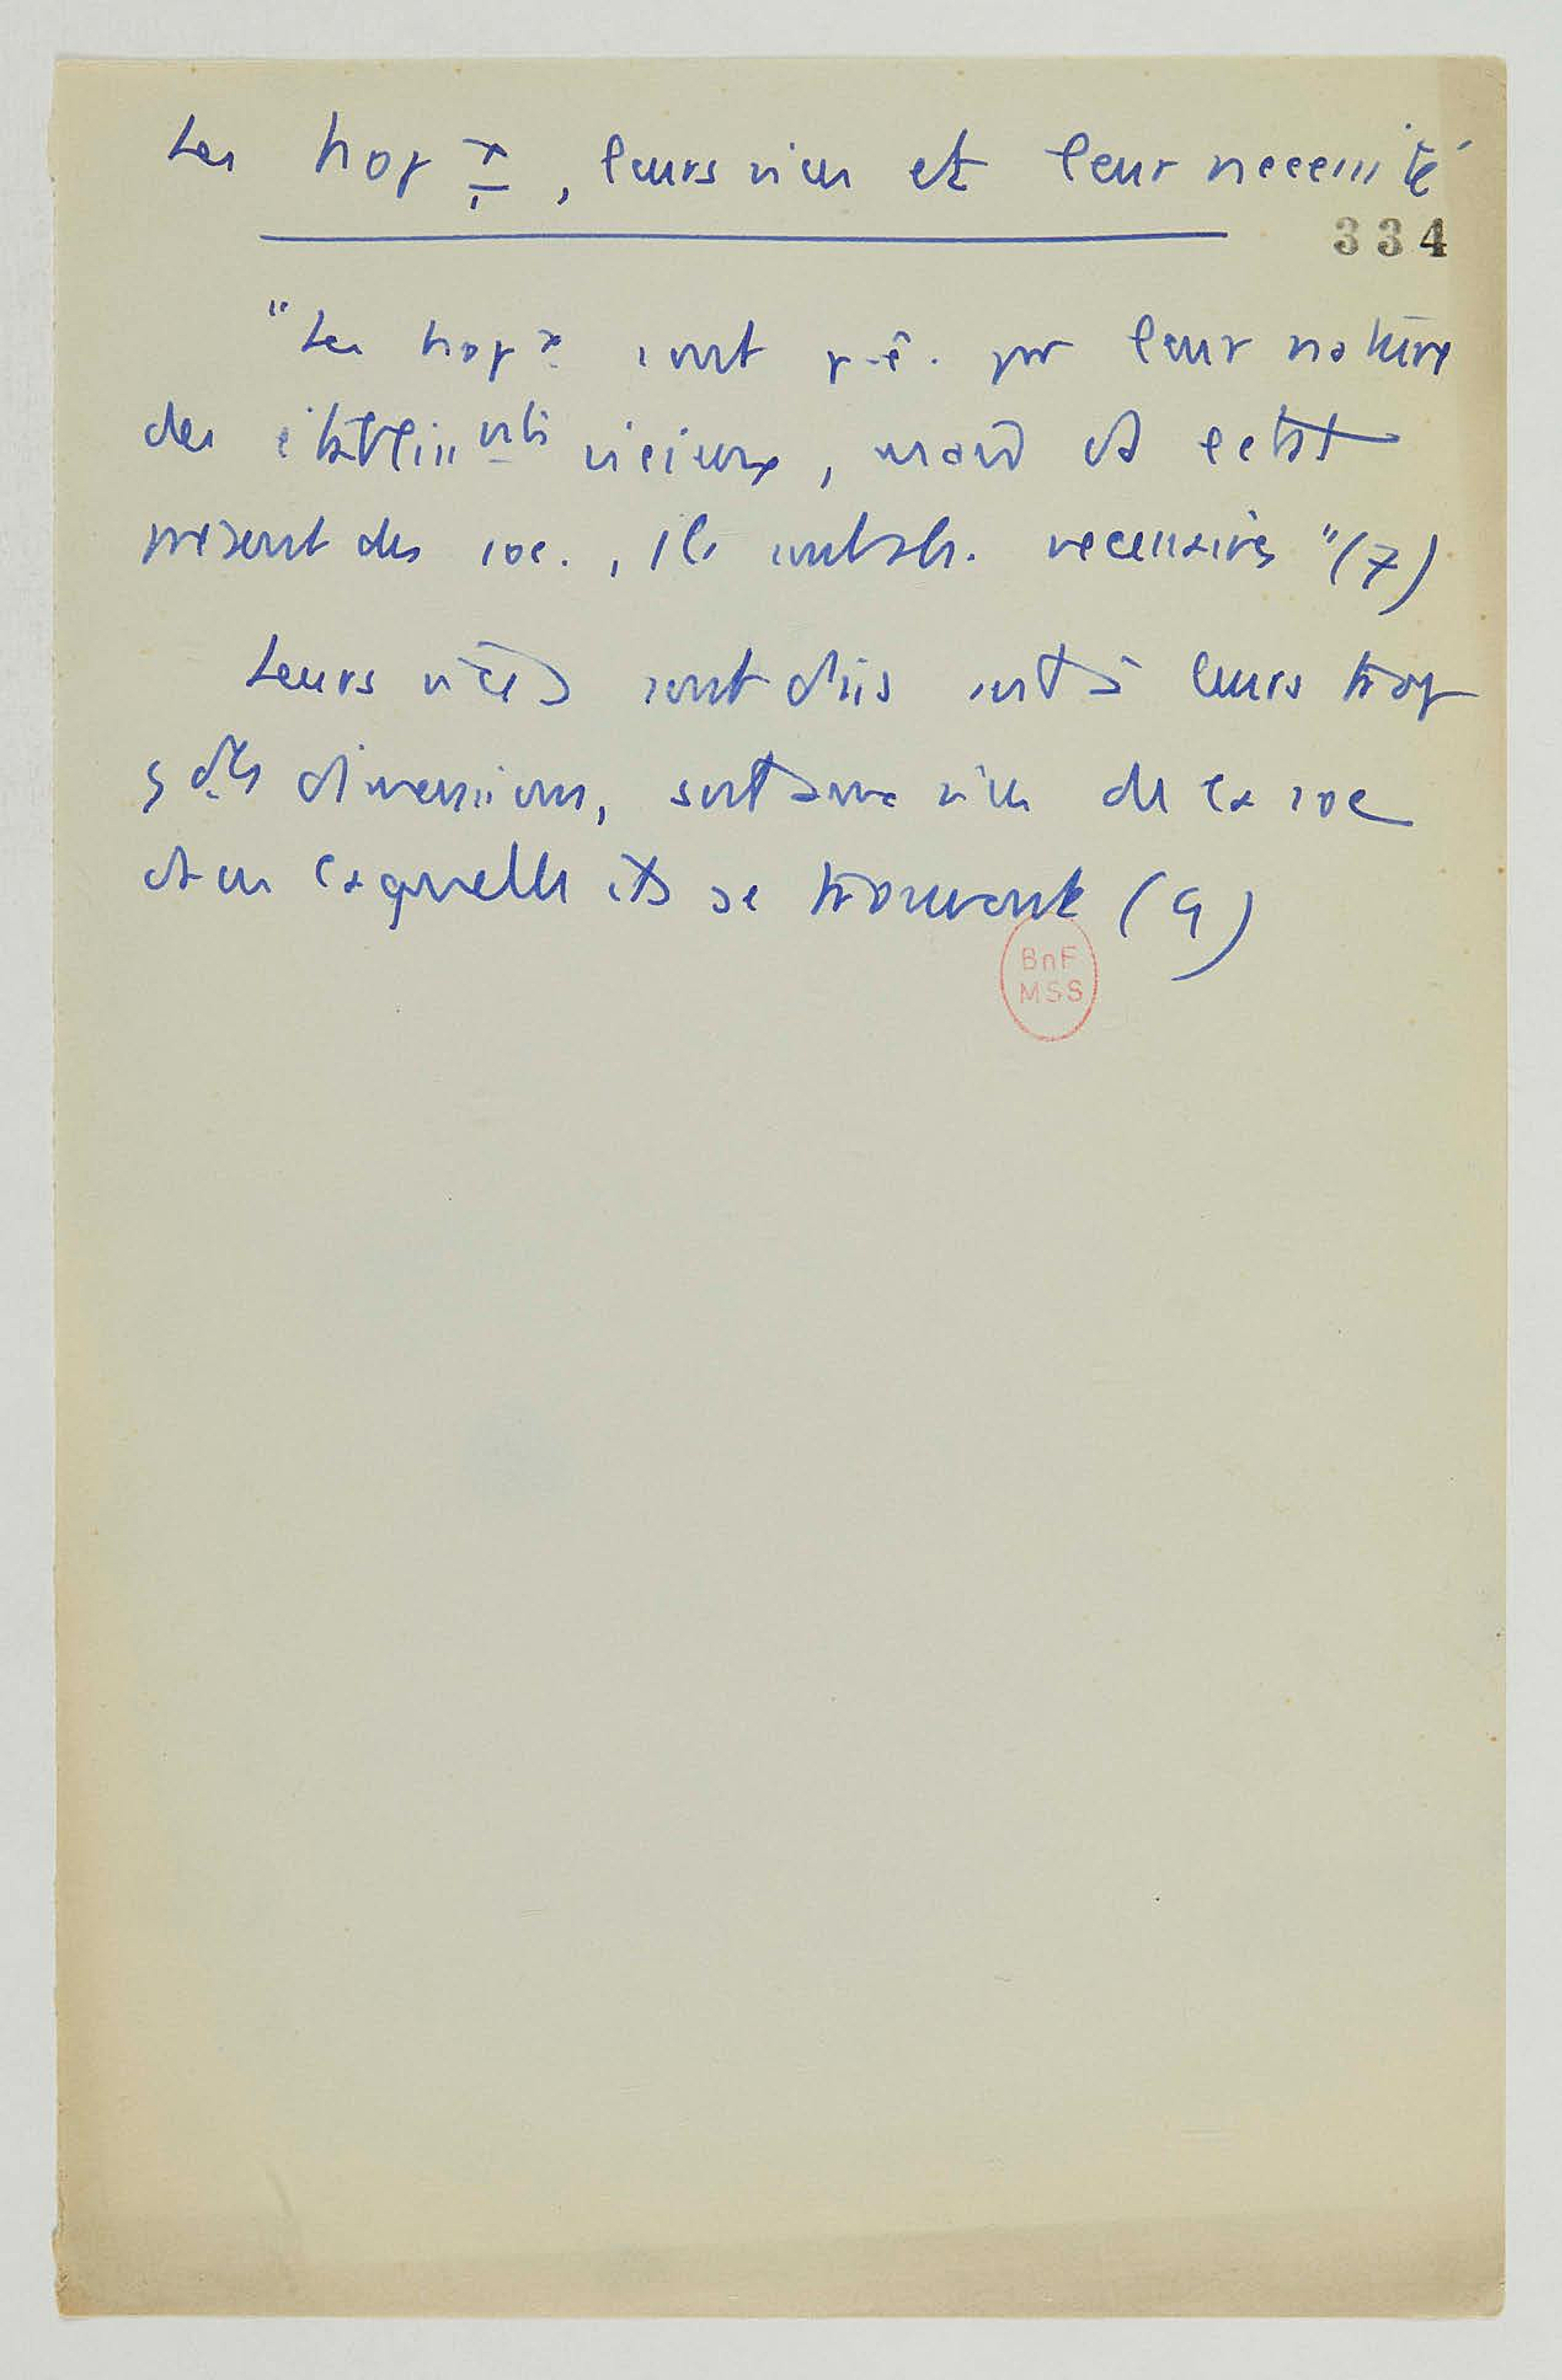 Les hop x, leurs vices et leur necessité
334
"Les hop x sont p-ê. par leur nature
des établissmts vicieux, mais ds l'état
présent des soc., ils sont nécessaires" (7)
Leurs vices sont dûs surt à leurs trop
gdes dimensions, surt aux vices de la soc
ds laquelle ils se trouvent (9)
BnF
MSS